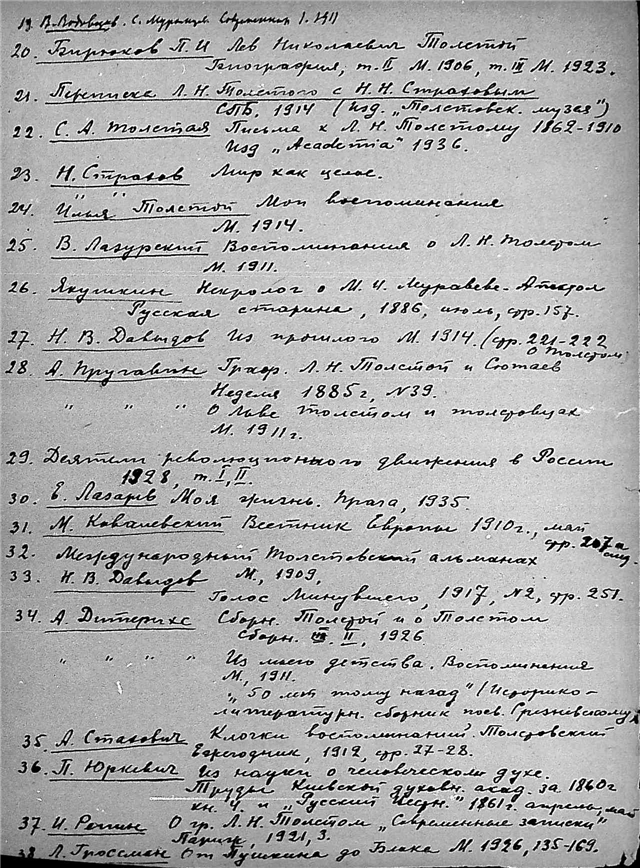 19 В. Водовозов. С. Муромцев. Современник 1. 1911
20. Бирюков П. И Лев Николаевич Толстой
Биография, т. II М. 1906, т. III М. 1923.
21. Переписка Л. Н. Толстого с Н. Н. Страховым
СПБ, 1914 (изд. „Толстовск. музея")
22. С. А. Толстая Письма к Л. Н. Толстому 1862-1910
изд „Academia" 1936.
23. Н. Страхов Мир как целое.
24. Илья Толстой Мои воспоминания
М. 1914.
25. В. Лазурский Воспоминания о Л. Н. Толстом
М. 1911.
26. Якушкин Некролог о М. И. Муравьеве-Апостол
Русская старина, 1886, июль, стр. 157.
27. Н. В. Давыдов Из прошлого М. 1914. (стр. 221-222
о Толстом)
28. А. Пругавин Граф. Л. Н. Толстой и Сютаев
Неделя 1885 г, N39.
" " " О Льве Толстом и толстовцах
М. 1911 г.
29. Деятели революционного движения в России
1928, т. I, II.
30. Е. Лазарев Моя жизнь. Прага, 1935.
31. М. Ковалевский Вестник Европы 1910 г., май
стр. 207 и след.
32. Международный Толстовский альманах
М, 1909,
33. Н. В. Давыдов
Голос Минувшего, 1917, N2, стр. 251.
34. А. Дитерихс Сборн. Толстой и о Толстом
Сборн. II, 1926.
" " " " Из моего детства. Воспоминания
М, 1911.
„50 лет тому назад" (Историко-
литературн. сборник посв. Срезневскому)
35. А. Стахович Клочки воспоминаний. Толстовский
Ежегодник, 1912, стр. 27-28.
36. П. Юркевич Из науки о человеческом духе.
Труды Киевской духовн. акад. за 1860 г
кн. 4 и „Русский Вестн." 1861 г. апрель, май
37. И. Репин О гр. Л. Н. Толстом „Современные записки"
Париж, 1921, 3.
38 Л. Гроссман От Пушкина до Блока М. 1926, 135-169.